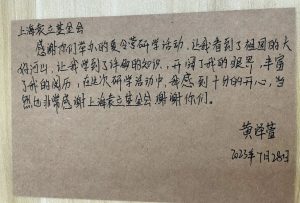 上海袁立基金会
感谢你们举办的夏令营研学活动，让我看到了祖国的大
好河山，让我学到了许多的知识，开阔了我的眼界，丰富
了我的阅历，在这次研学活动中，我感到十分的开心，当
然也非常感谢上海袁立基金会 谢谢你们。
黄
2023年7月28日